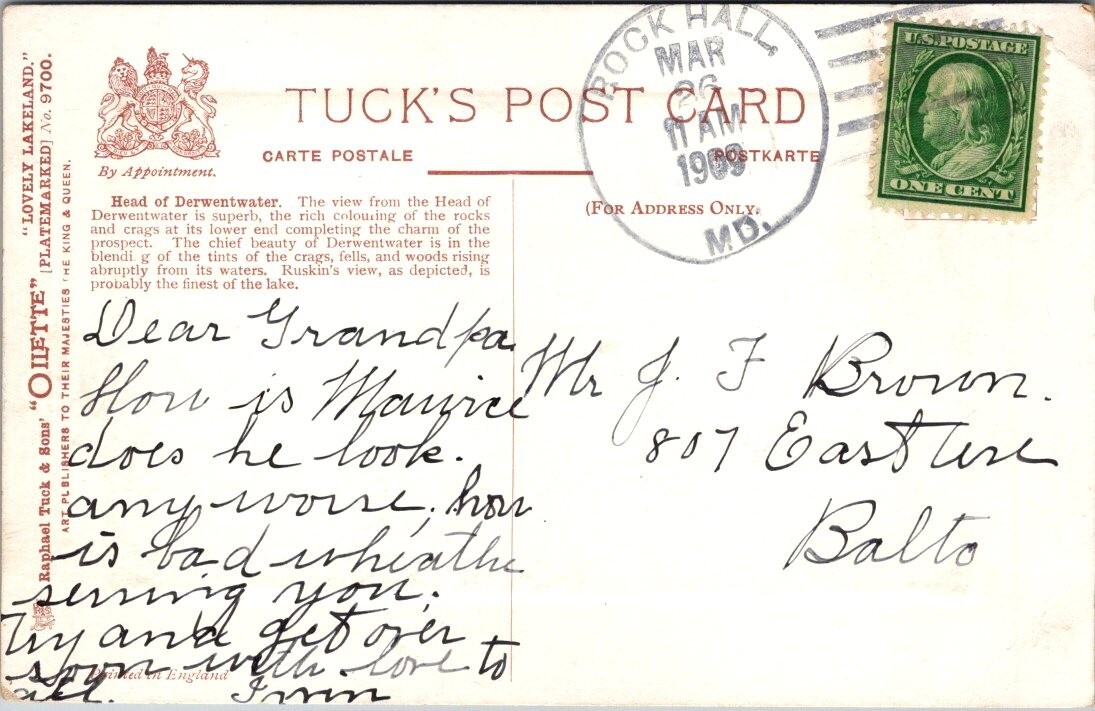 "LOVELY LAKELAND."
[PLATEMARKED] No. 9700.
Raphael Tuck & Sons' "OILETTE"
ART PUBLISHERS TO THEIR MAJESTIES THE KING & QUEEN.
By Appointment.
TUCK'S POST CARD
CARTE POSTALE
POSTKARTE
(FOR ADDRESS ONLY.
ROCK HALL,
MAR
26
11 AM
1909
MD.
U.S. POSTAGE
ONE CENT
Head of Derwentwater. The view from the Head of
Derwentwater is superb, the rich colouing of the rocks
and crags at its lower end completing the charm of the
prospect. The chief beauty of Derwentwater is in the
blendi g of the tints of the crags, fells, and woods rising
abruptly from its waters. Ruskin's view, as depicted, is
probably the finest of the lake.
Dear Grandpa.
How is Maurice
does he look.
any worse. how
is bad wheathe
serving you.
Try and get over
soon with love to
all. Irvin
Printed in England
Mr J. F Brown.
807 East
Balto